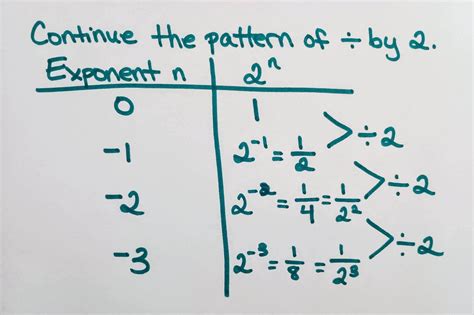 Continue the pattern of ÷ by 2.
Exponent n 2ⁿ
0 1
-1 2⁻¹ = 1/2 >÷2
-2 2⁻² = 1/4 = 1/2² >÷2
-3 2⁻³ = 1/8 = 1/2³ >÷2